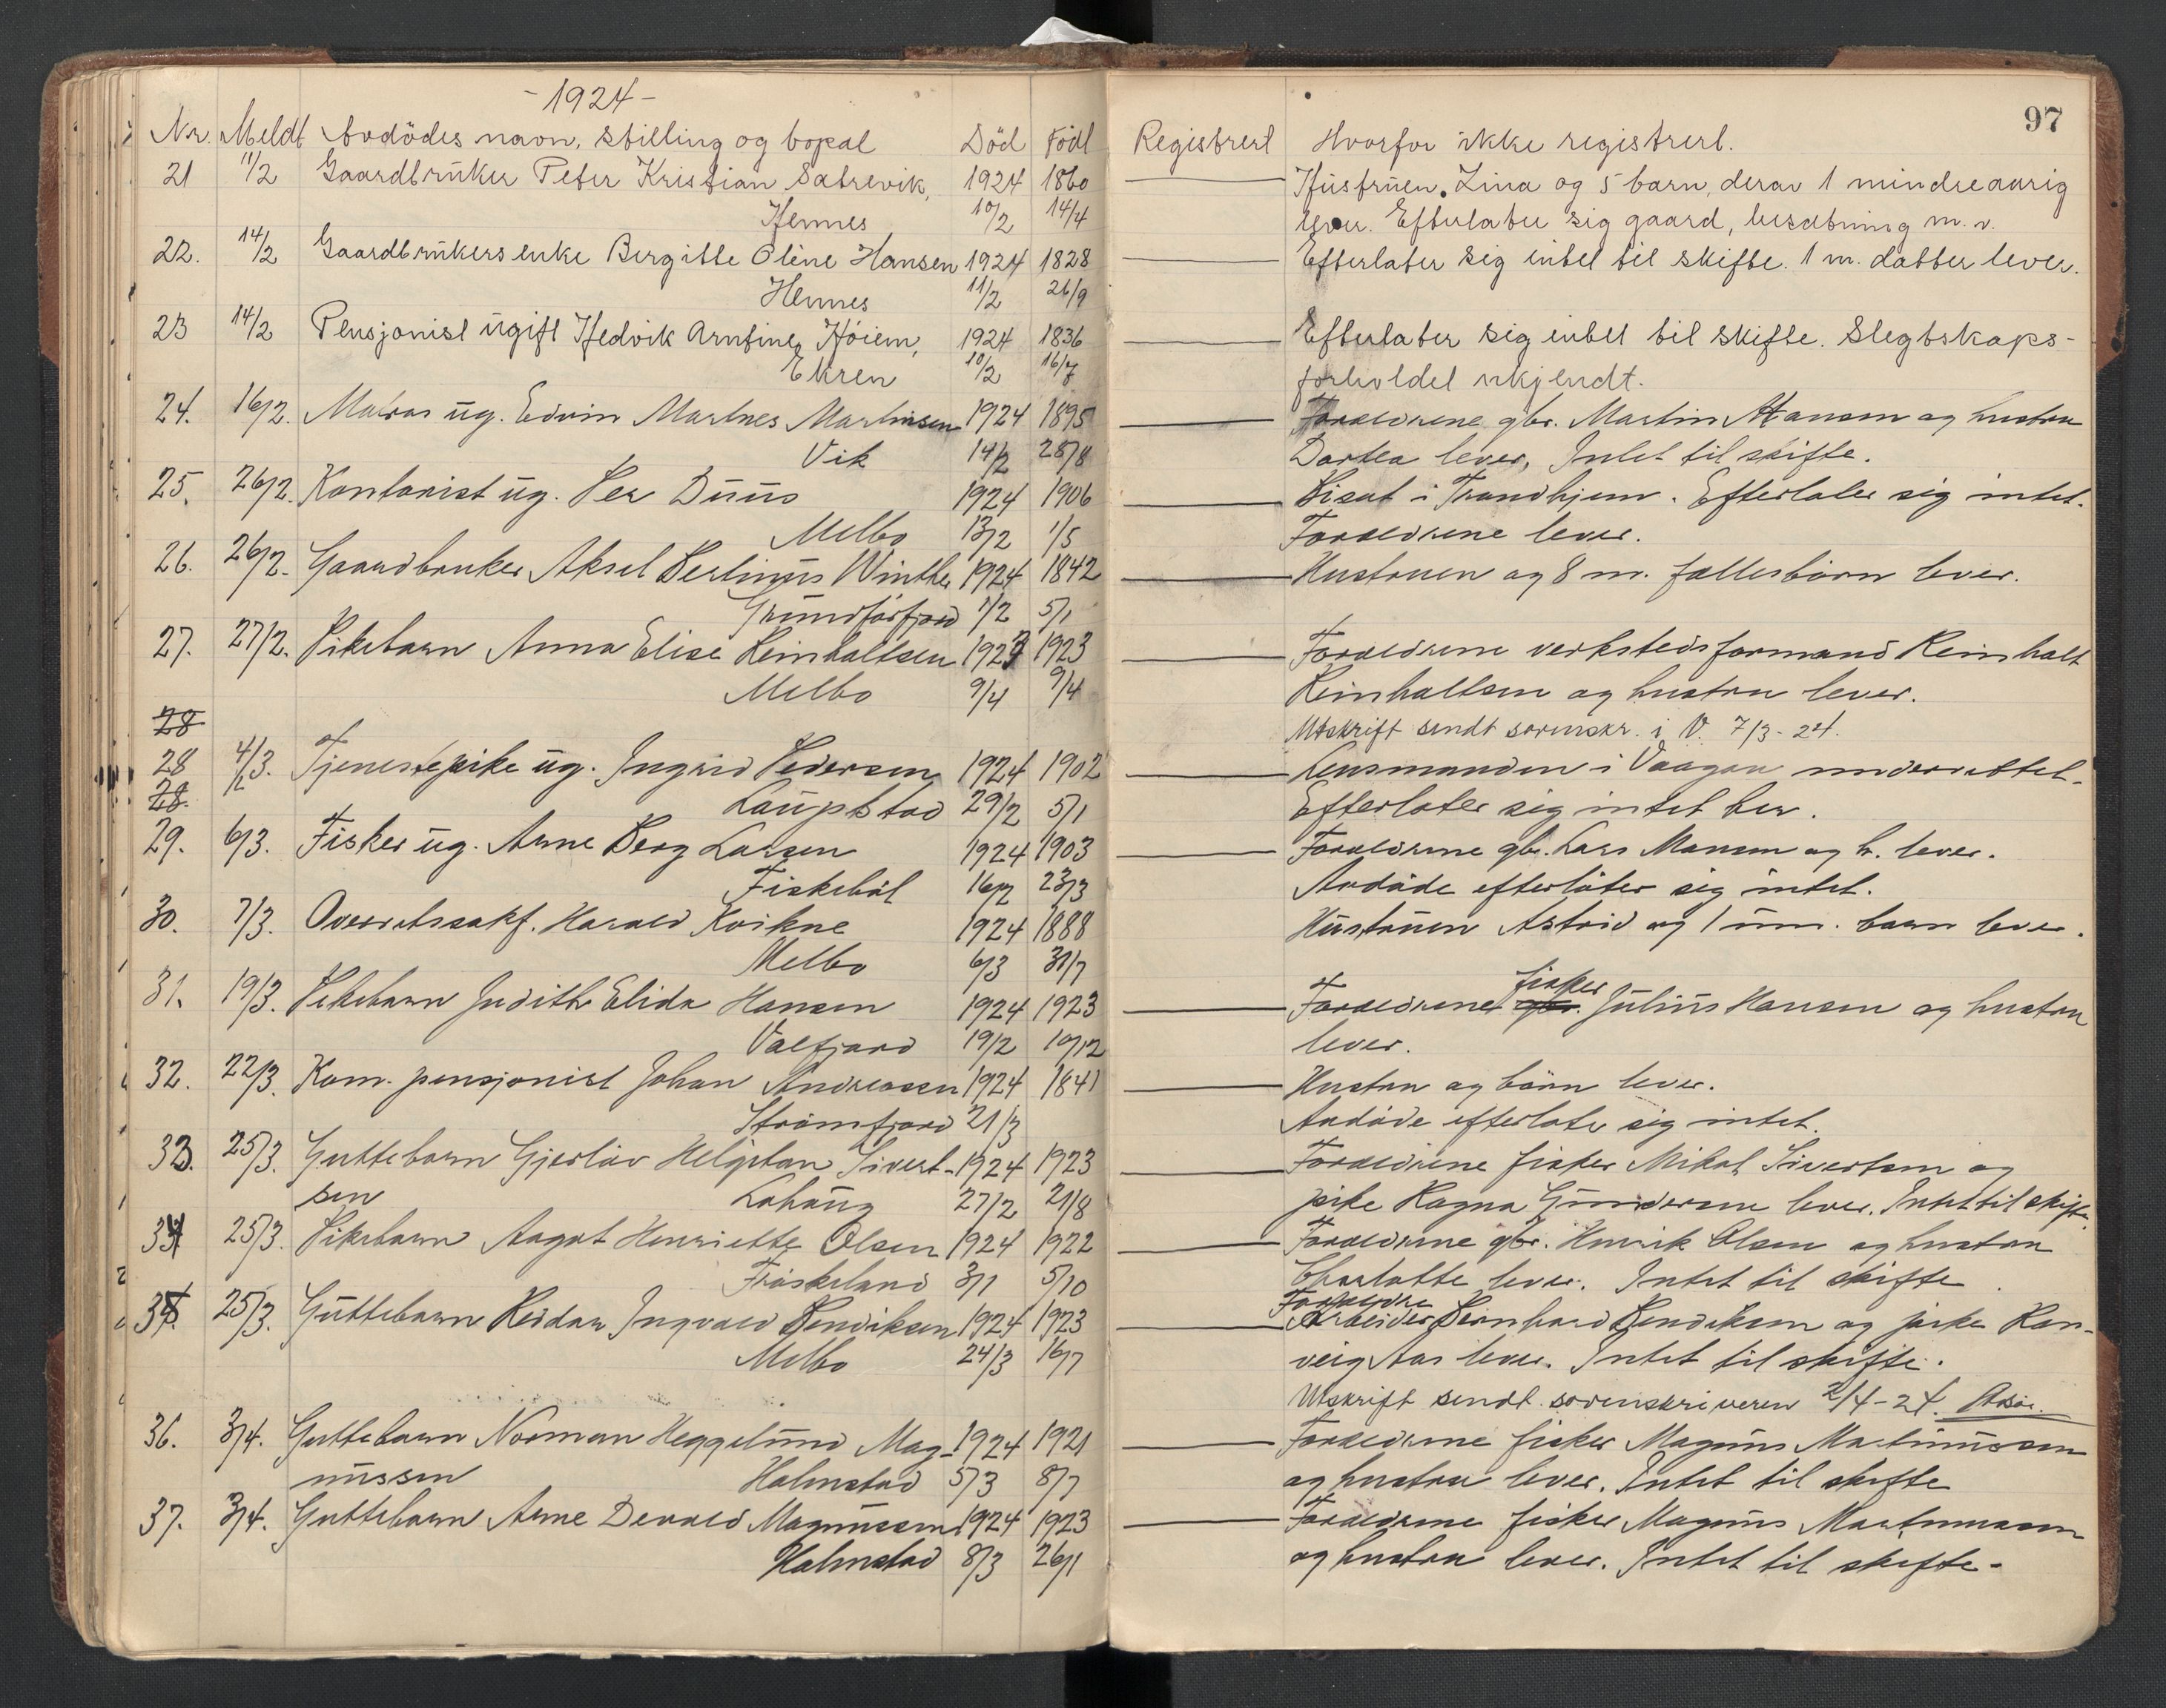 97
- 1924 -
Nr. Meldt Avdödes navn, stilling og bopæl Död Född Registrert Hvorfor ikke registrert.
21 11/2 Gaardbruker Peter Kristian Sætrevik, 1924 1860 Hustruen Lina og 5 barn, derav 1 mindreaarig
Hennes 10/2 14/4 lever. Efterlater sig gaard, besætning m. v.
22. 14/2 Gaardbrukers enke Bergitte Oline Hansen 1924 1828 Efterlater sig intet til skifte. 1 m. datter lever.
Hennes 11/2 26/9
23 14/2 Pensjonist ugift Hedvik Arnfine Höiem, 1924 1836 Efterlater sig intet til skifte. Slegtskaps-
Ekren 10/2 16/7 forholdet ukjendt.
24. 16/2. Matros ug. Edvin Martnes Martinsen 1924 1895 Forældrene gbr. Martin Hansen og hustru
Vik 14/2 28/8 Dortea lever, Intet til skifte.
25. 26/2. Kontorist ug. Per Duus 1924 1906 Bisat i Trondhjem. Efterlater sig intet.
Melbo 13/2 1/5 Forældrene lever.
26. 26/2. Gaardbruker Aksel Bertinus Winther 1924 1842 Hustruen og 8 m. fællesbörn lever.
Grundförfjord 1/2 5/1
27. 27/2. Pikebarn Anna Elise Reinholtsen 1923 1923 Forældrene verkstedsformand Reinholt
Melbo 9/4 9/4 Reinholtsen og hustru lever.
28 Utskrift sendt sorenskr. i V. 7/3-24.
28 4/3. Tjenestepike ug. Ingrid Pedersen 1924 1902 Lensmanden i Vaagan underrettet.
28. Laupstad 29/2 5/1 Efterlater sig intet her.
29. 6/3. Fisker ug. Arne Berg Larsen 1924 1903 Forældrene gbr. Lars Monsen og h. lever.
Fiskeböl 16/2 23/3 Avdöde efterlater sig intet.
30. 7/3. Overretssakf. Harald Kvikne 1924 1888 Hustruen Astrid og 1 um. barn lever.
Melbo 6/3 31/7
31. 19/3. Pikebarn Judith Elida Hansen 1924 1923 Forældrene gbr. fisker Julius Hansen og hustru
Valfjord 19/2 10/12 lever.
32. 22/3. Kom. pensjonist Johan Andreassen 1924 1841 Hustru og börn lever.
Strömfjord 21/3 Avdöde efterlater sig intet.
33. 25/3. Guttebarn Gjerlöv Helgetan Sivert- 1924 1923 Forældrene fisker Mikal Sivertsen og
sen Lahaug 27/2 21/8 pike Ragna Gundersen lever. Intet til skifte.
34 25/3. Pikebarn Aagot Henriette Olsen 1924 1922 Forældrene gbr. Henrik Olsen og hustru
Fröskeland 3/1 5/10 Charlotte lever. Intet til skifte
35. 25/3. Guttebarn Reidar Ingvald Bendiksen 1924 1923 Forældre Arbeider Bernhard Bendiksen og pike Ran-
Melbo 24/3 16/7 veig Aas lever. Intet til skifte.
Utskrift sendt sorenskriveren 2/4-24.
36. 3/4. Guttebarn Norman Heggelund Mag- 1924 1921 Forældrene fisker Magnus Martinussen
nussen Holmstad 5/3 8/7 og hustru lever. Intet til skifte
37. 3/4. Guttebarn Arne Devold Magnussen 1924 1923 Forældrene fisker Magnus Martinussen
Holmstad 8/3 26/1 og hustru lever. Intet til skifte.